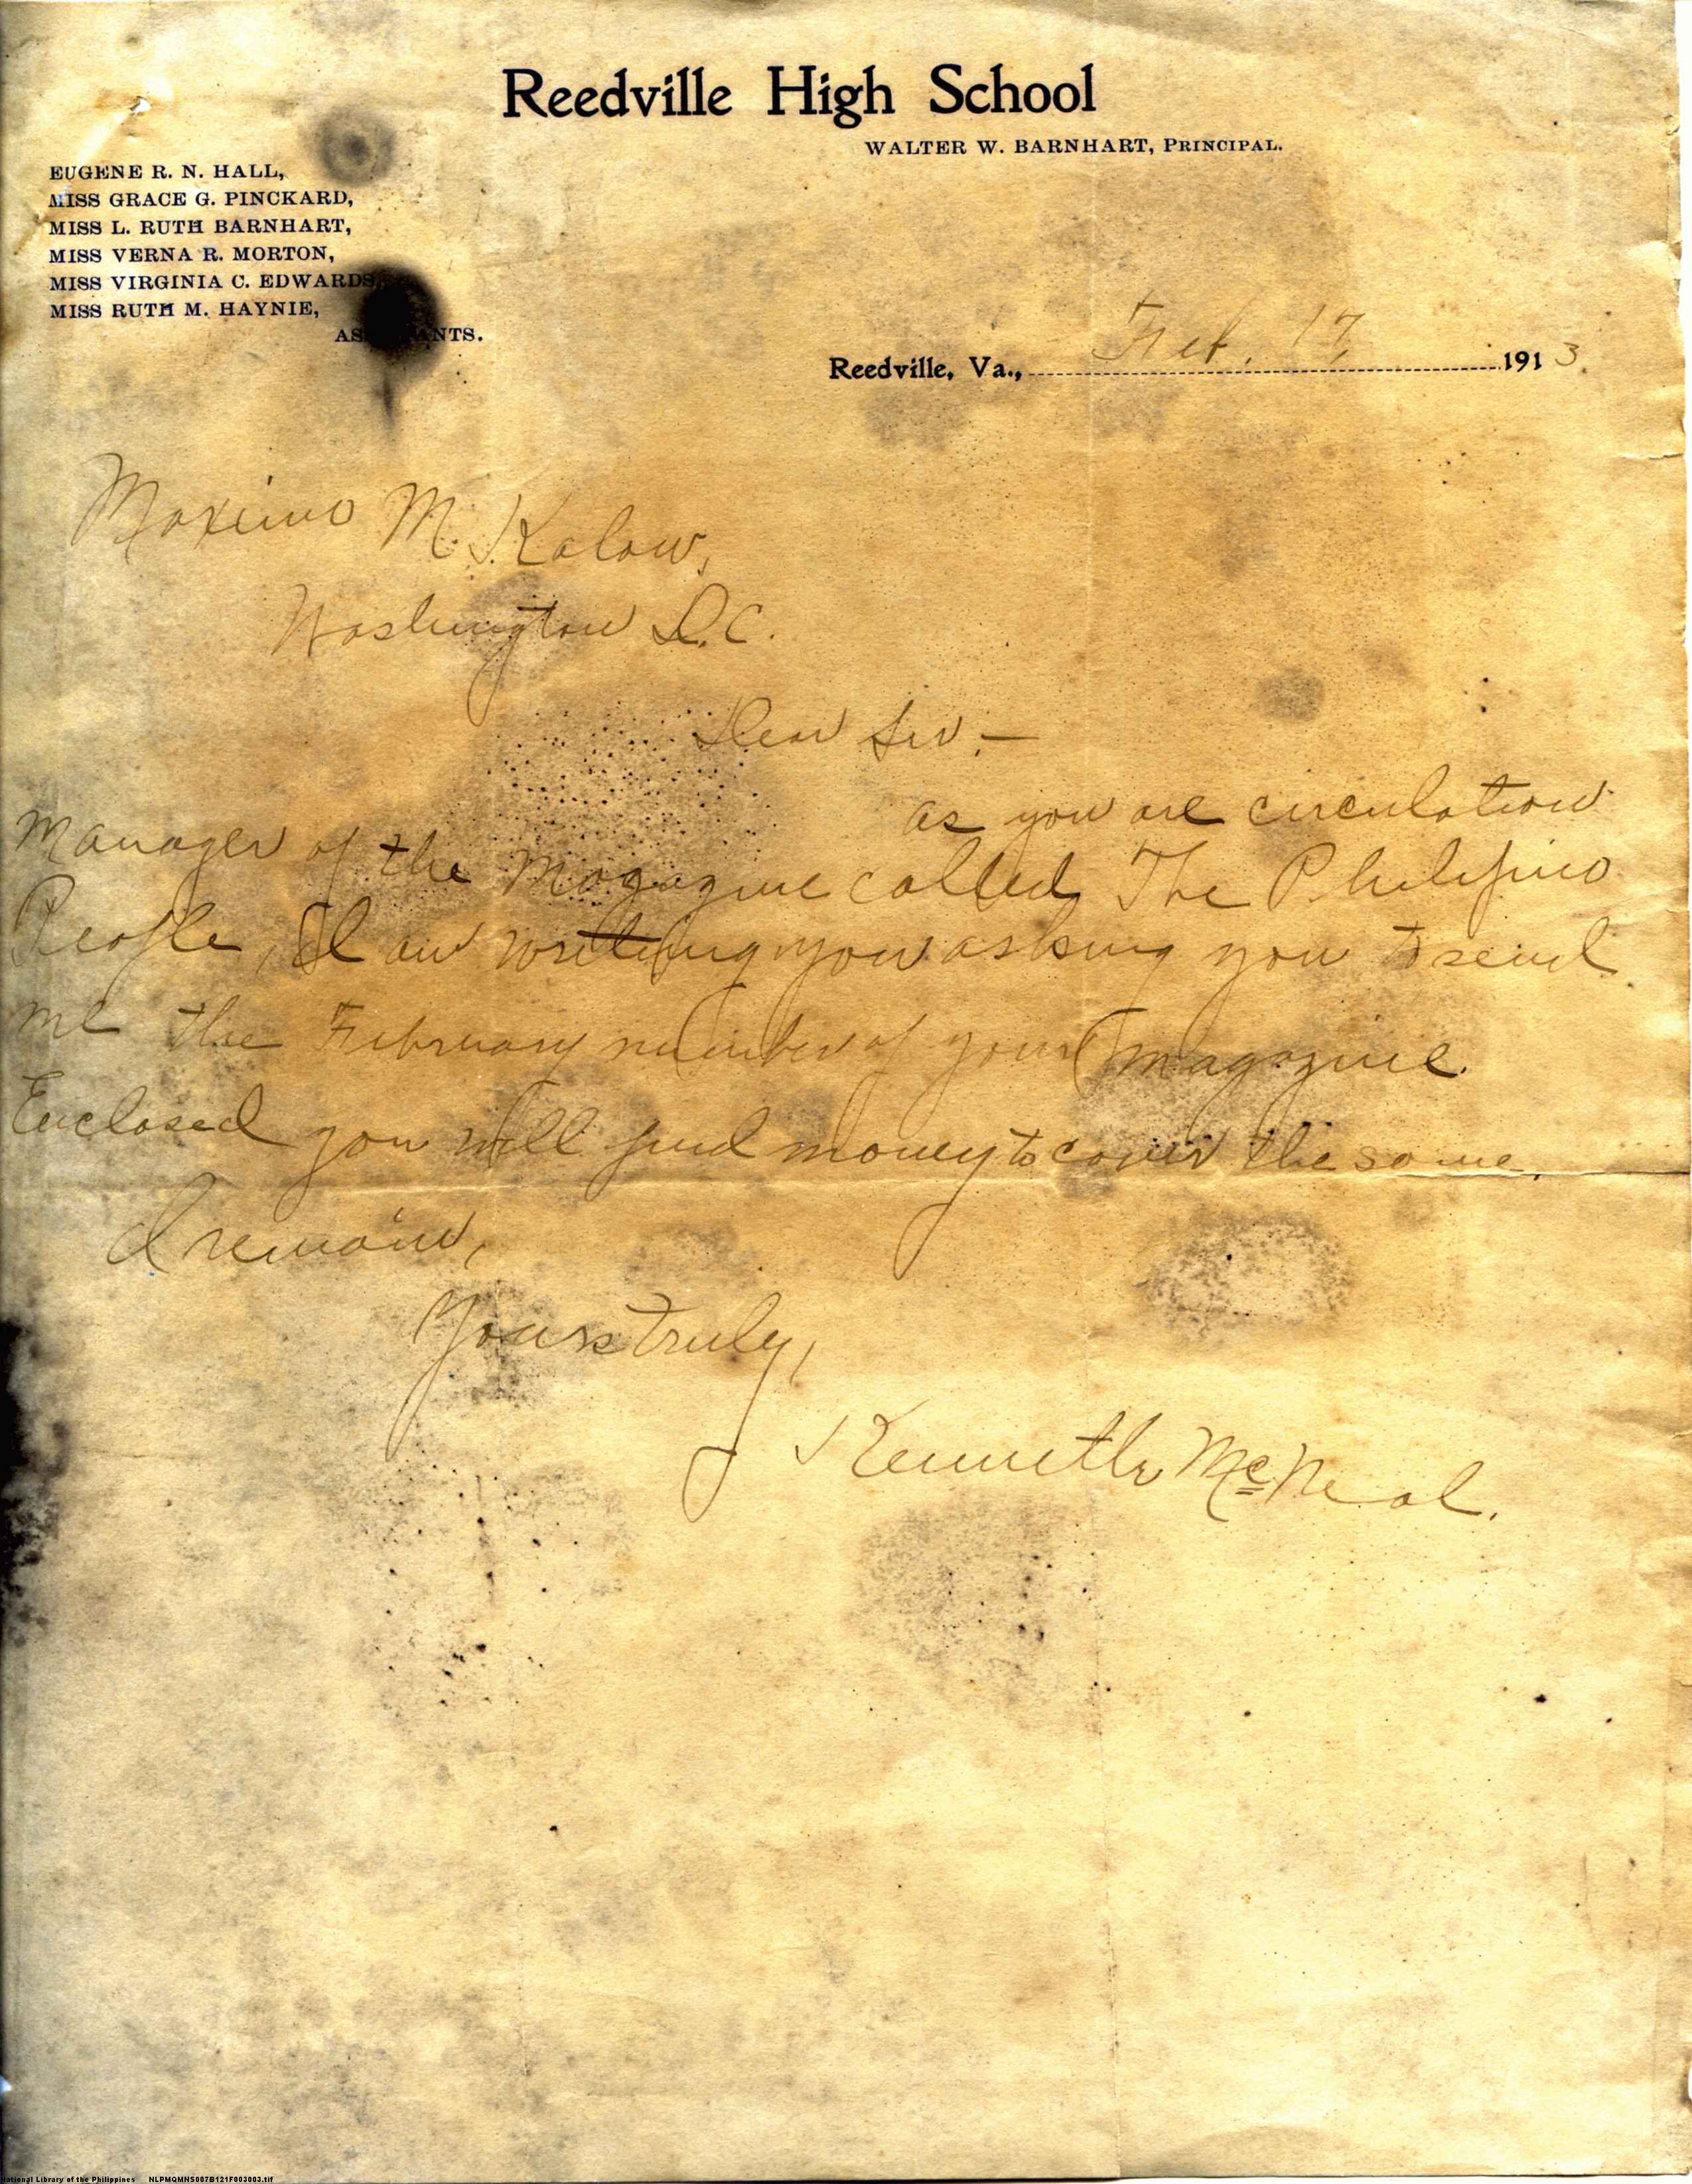 Reedville High School
WALTER W. BARNHART, PRINCIPAL.
EUGENE R. N. HALL,
MISS GRACE G. PINCKARD,
MISS L. RUTH BARNHART,
MISS VERNA R. MORTON,
MISS VIRGINIA C. EDWARDS,
MISS RUTH M. HAYNIE,
ASSISTANTS.
Reedville, Va., Feb. 17, 1913.
Maximo M. Kalaw,
Washington D.C.
Dear Sir:—
as you are circulation
Manager of the Magazine called The Philipino
People, I am writing you asking you to send
me the February number of your magazine.
Enclosed you will find money to cover the same.
I remain,
Yours truly,
Kenneth McNeal.
National Library of the Philippines NLPMQMNS007B121F003003.tif